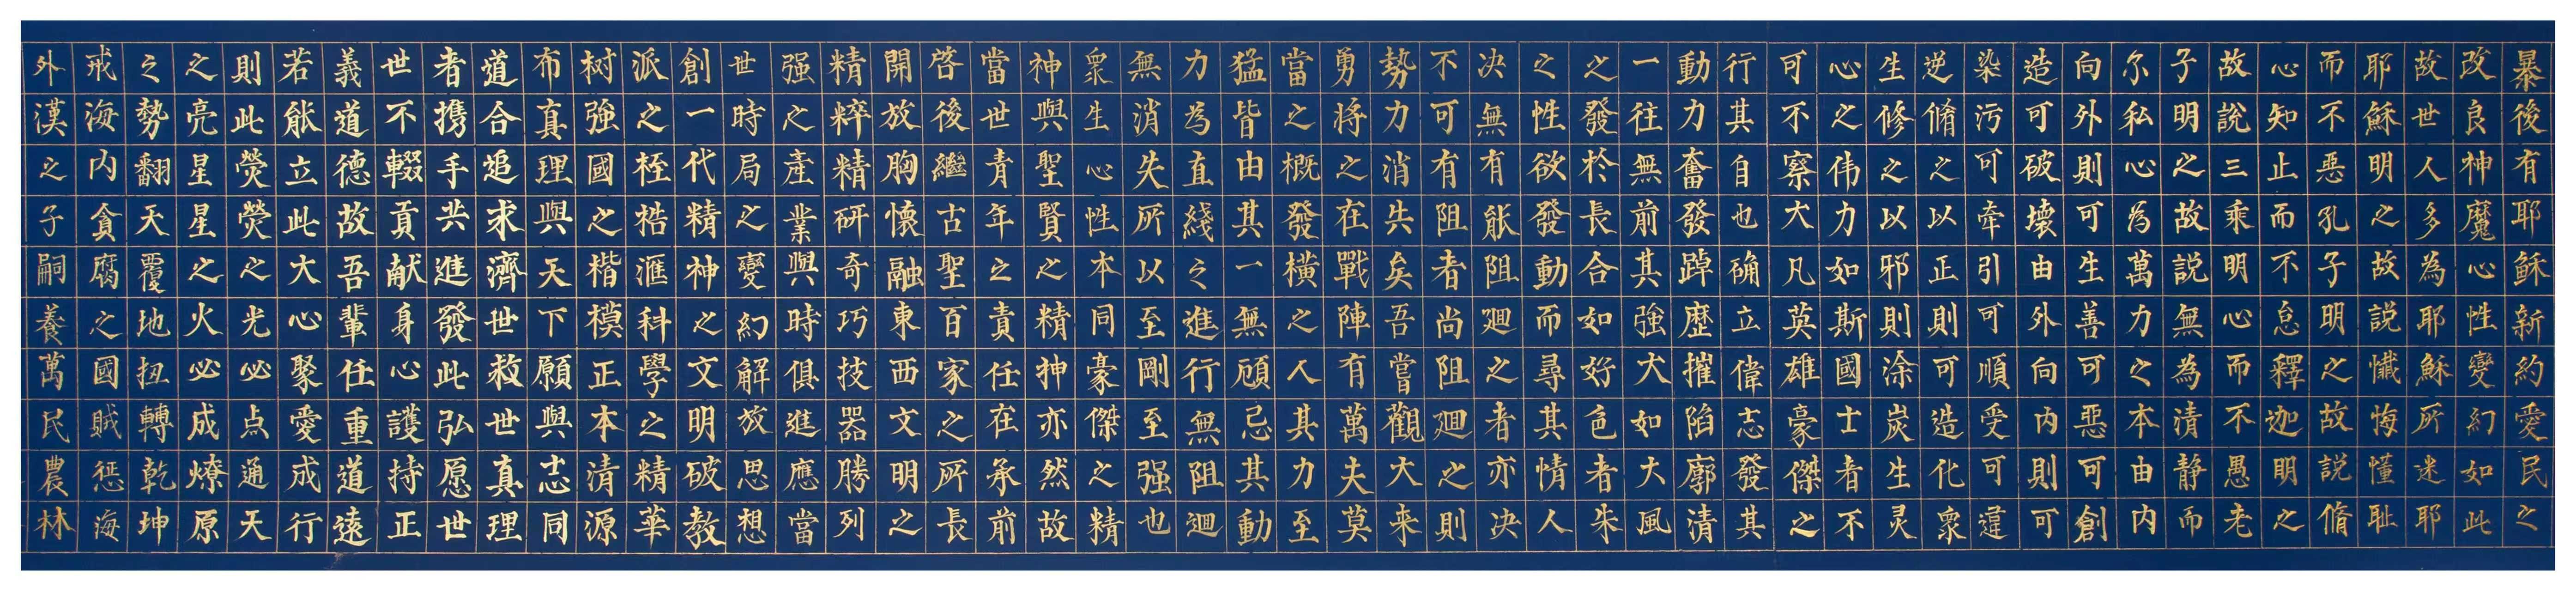 暴後有耶稣新約愛民之
改良神魔心性變幻如此
故世人多為耶穌所迷耶
耶穌明之故說懺悔懂耻
而不惡孔子明之故說脩
心知止而不怠釋迦明之
故說三乘明心而不愚老
子明之故説無為清静而
尔私心為萬力之本由内
向外則可生善可惡可創
造可破壞由外向内則可
染污可牽引可順受可違
逆脩之以正則可造化衆
生修之以邪則涂炭生灵
心之伟力如斯國士者不
可不察大凡莫雄豪傑之
行其自也确立偉志發其
動力奮發踔歷摧陷廓清
一往無前其強大如大風
之發於長合如好色者朱
之性欲發動而尋其情人
决無有能阻廻之者亦决
不可有阻者尚阻廻之則
勢力消失矣吾嘗觀大来
勇將之在戰陣有萬夫莫
當之概發橫之人其力至
猛皆由其一無顧忌其動
力為直綫之進行無阻廻
無消失所以至剛至强也
衆生心性本同豪傑之精
神與聖賢之精神亦然故
當世青年之責任在承前
啓後繼古聖百家之所長
開放胸懷融東西文明之
精粹精研奇巧技器勝列
强之產業與時俱進應當
世時局之變幻解放思想
創一代精神之文明破教
派之桎梏滙科學之精華
树強國之楷模正本清源
布真理與天下願與志同
道合追求濟世救世真理
者携手共進發此弘愿世
世不輟貢献身心護持正
義道德故吾輩任重道遠
若能立此大心聚愛成行
則此熒熒之光必点通天
之亮星星之火必成燎原
之勢翻天覆地扭轉乾坤
戒海内貪腐之國賊惩海
外漢之子嗣養萬民農林